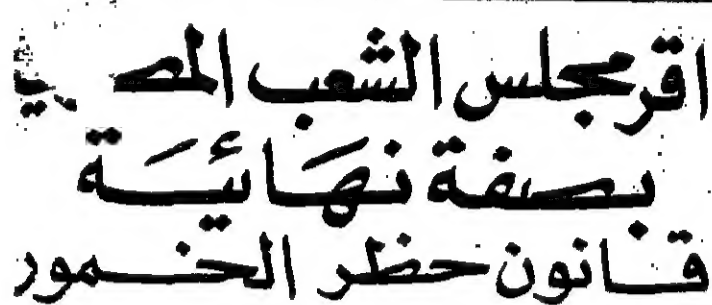 اقر مجلس الشعب
بصفة نهائية
قانون حظر الخمور